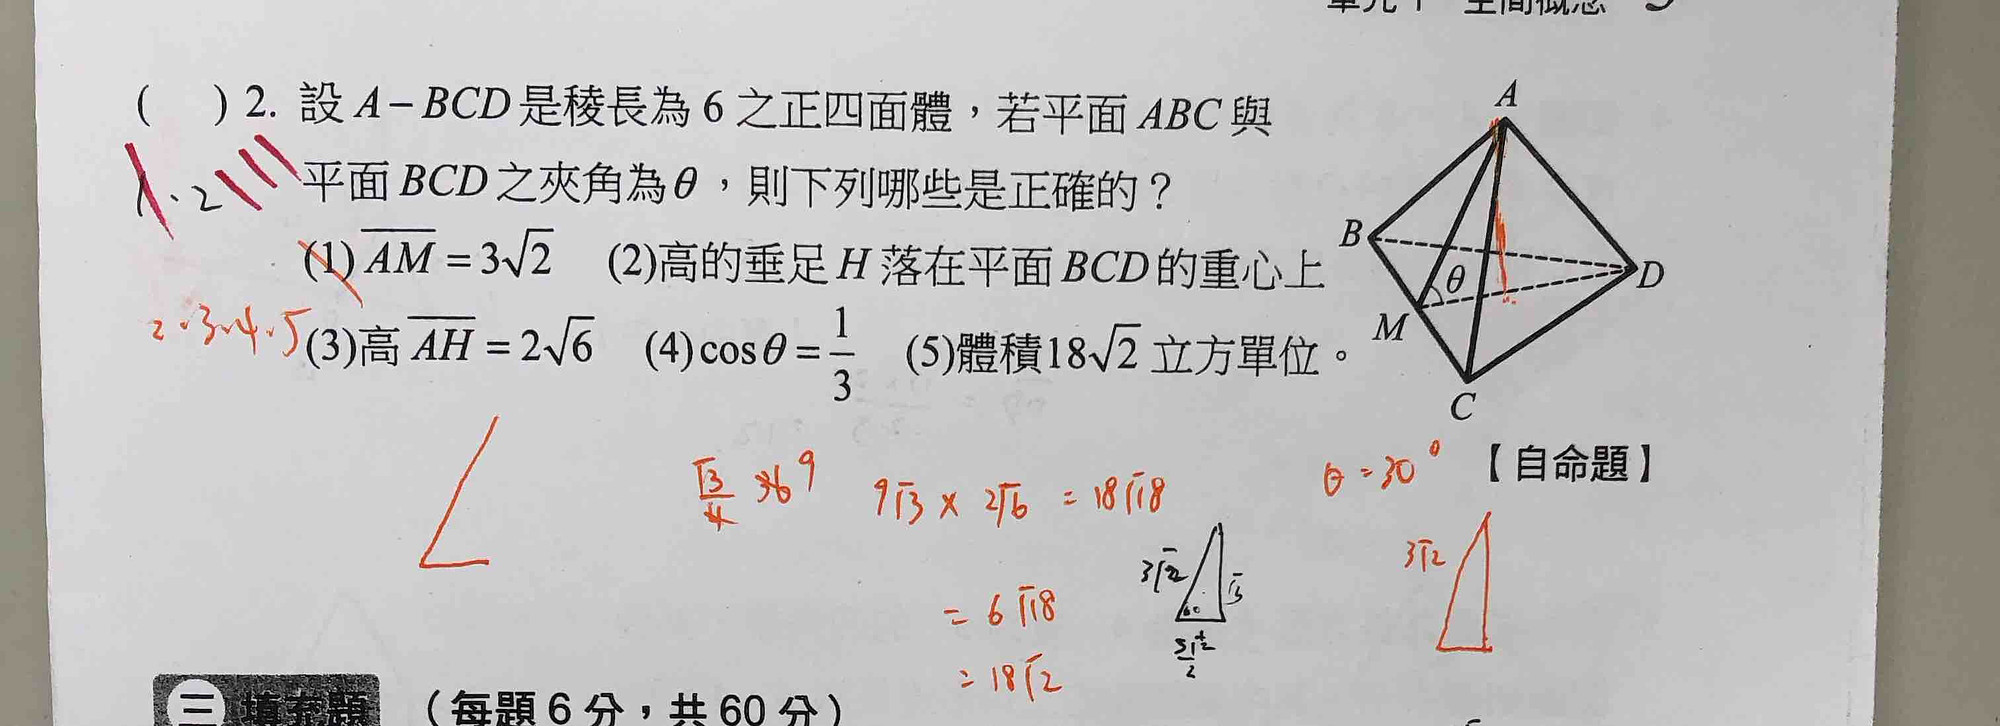 單元 1 空間概念
( ) 2. 設 A－BCD 是稜長為 6 之正四面體，若平面 ABC 與
平面 BCD 之夾角為 θ，則下列哪些是正確的？
1.2
(1) \overline{AM} = 3√2 (2)高的垂足 H 落在平面 BCD 的重心上
2.3.4.5
(3)高 \overline{AH} = 2√6 (4) cos θ = 1/3 (5)體積18√2 立方單位。
A
B
D
θ
M
C
【自命題】
√3/4 36 9
9√3 × 2√6 = 18√18
= 6√18
= 18√2
3√2
√3
60
θ = 30°
3√2
三 填充題 （每題 6 分，共 60 分）